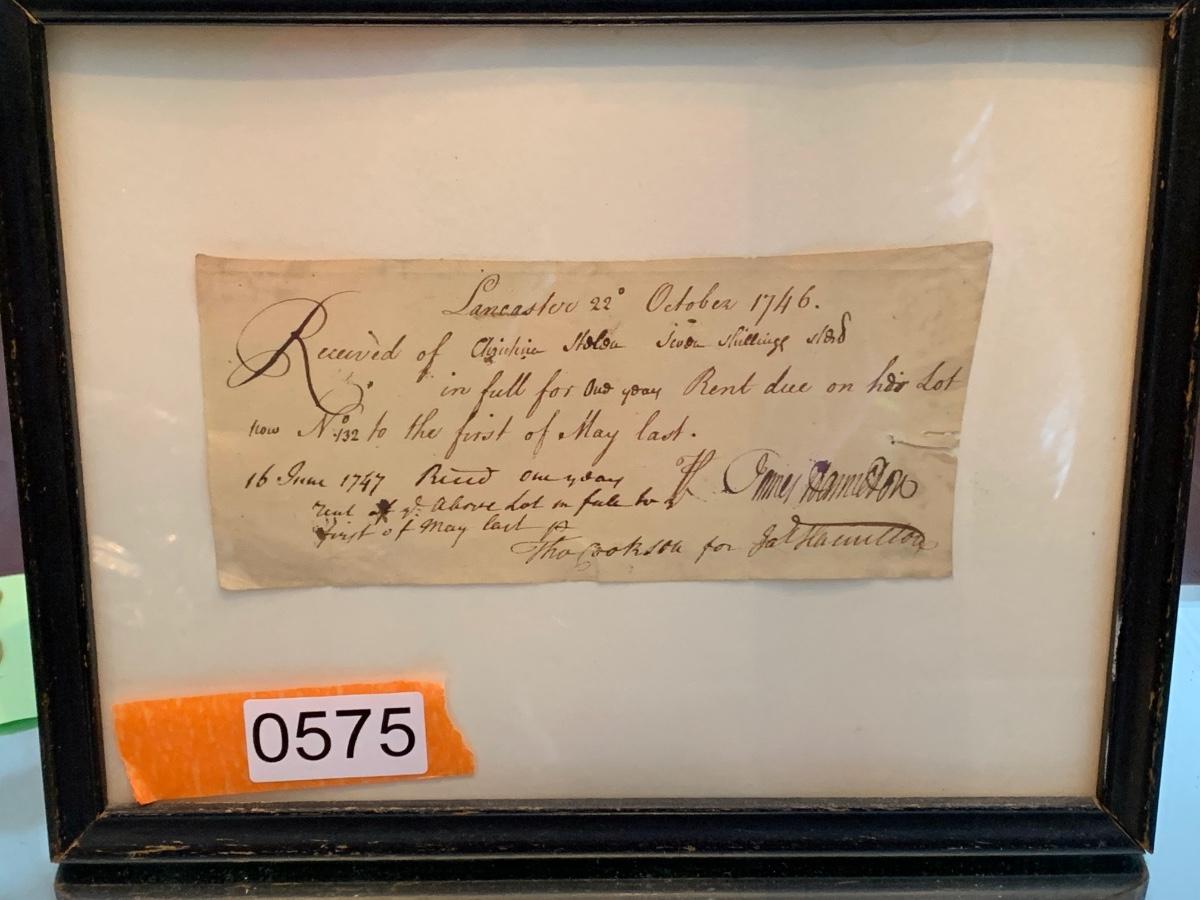 Lancaster 22° October 1746.
Receiv'd of Christina Seven Shillings Sterls
in full for One year Rent due on her Lot
now N.° 132 to the first of May last.
16 June 1747 Recd one year
Rent of ye Above Lot in full to ye
first of May last
James Hamilton
Tho Cookson for Jas Hamilton
0575